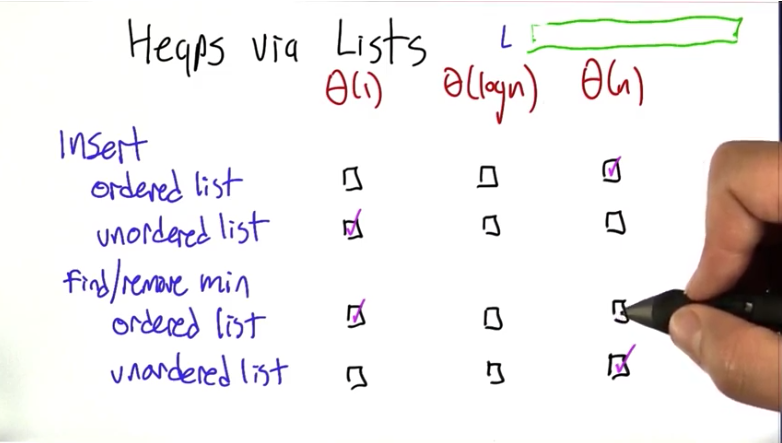 Heaps via Lists L
θ(1) θ(logn) θ(n)
Insert
ordered list
unordered list
find/remove min
ordered list
unordered list